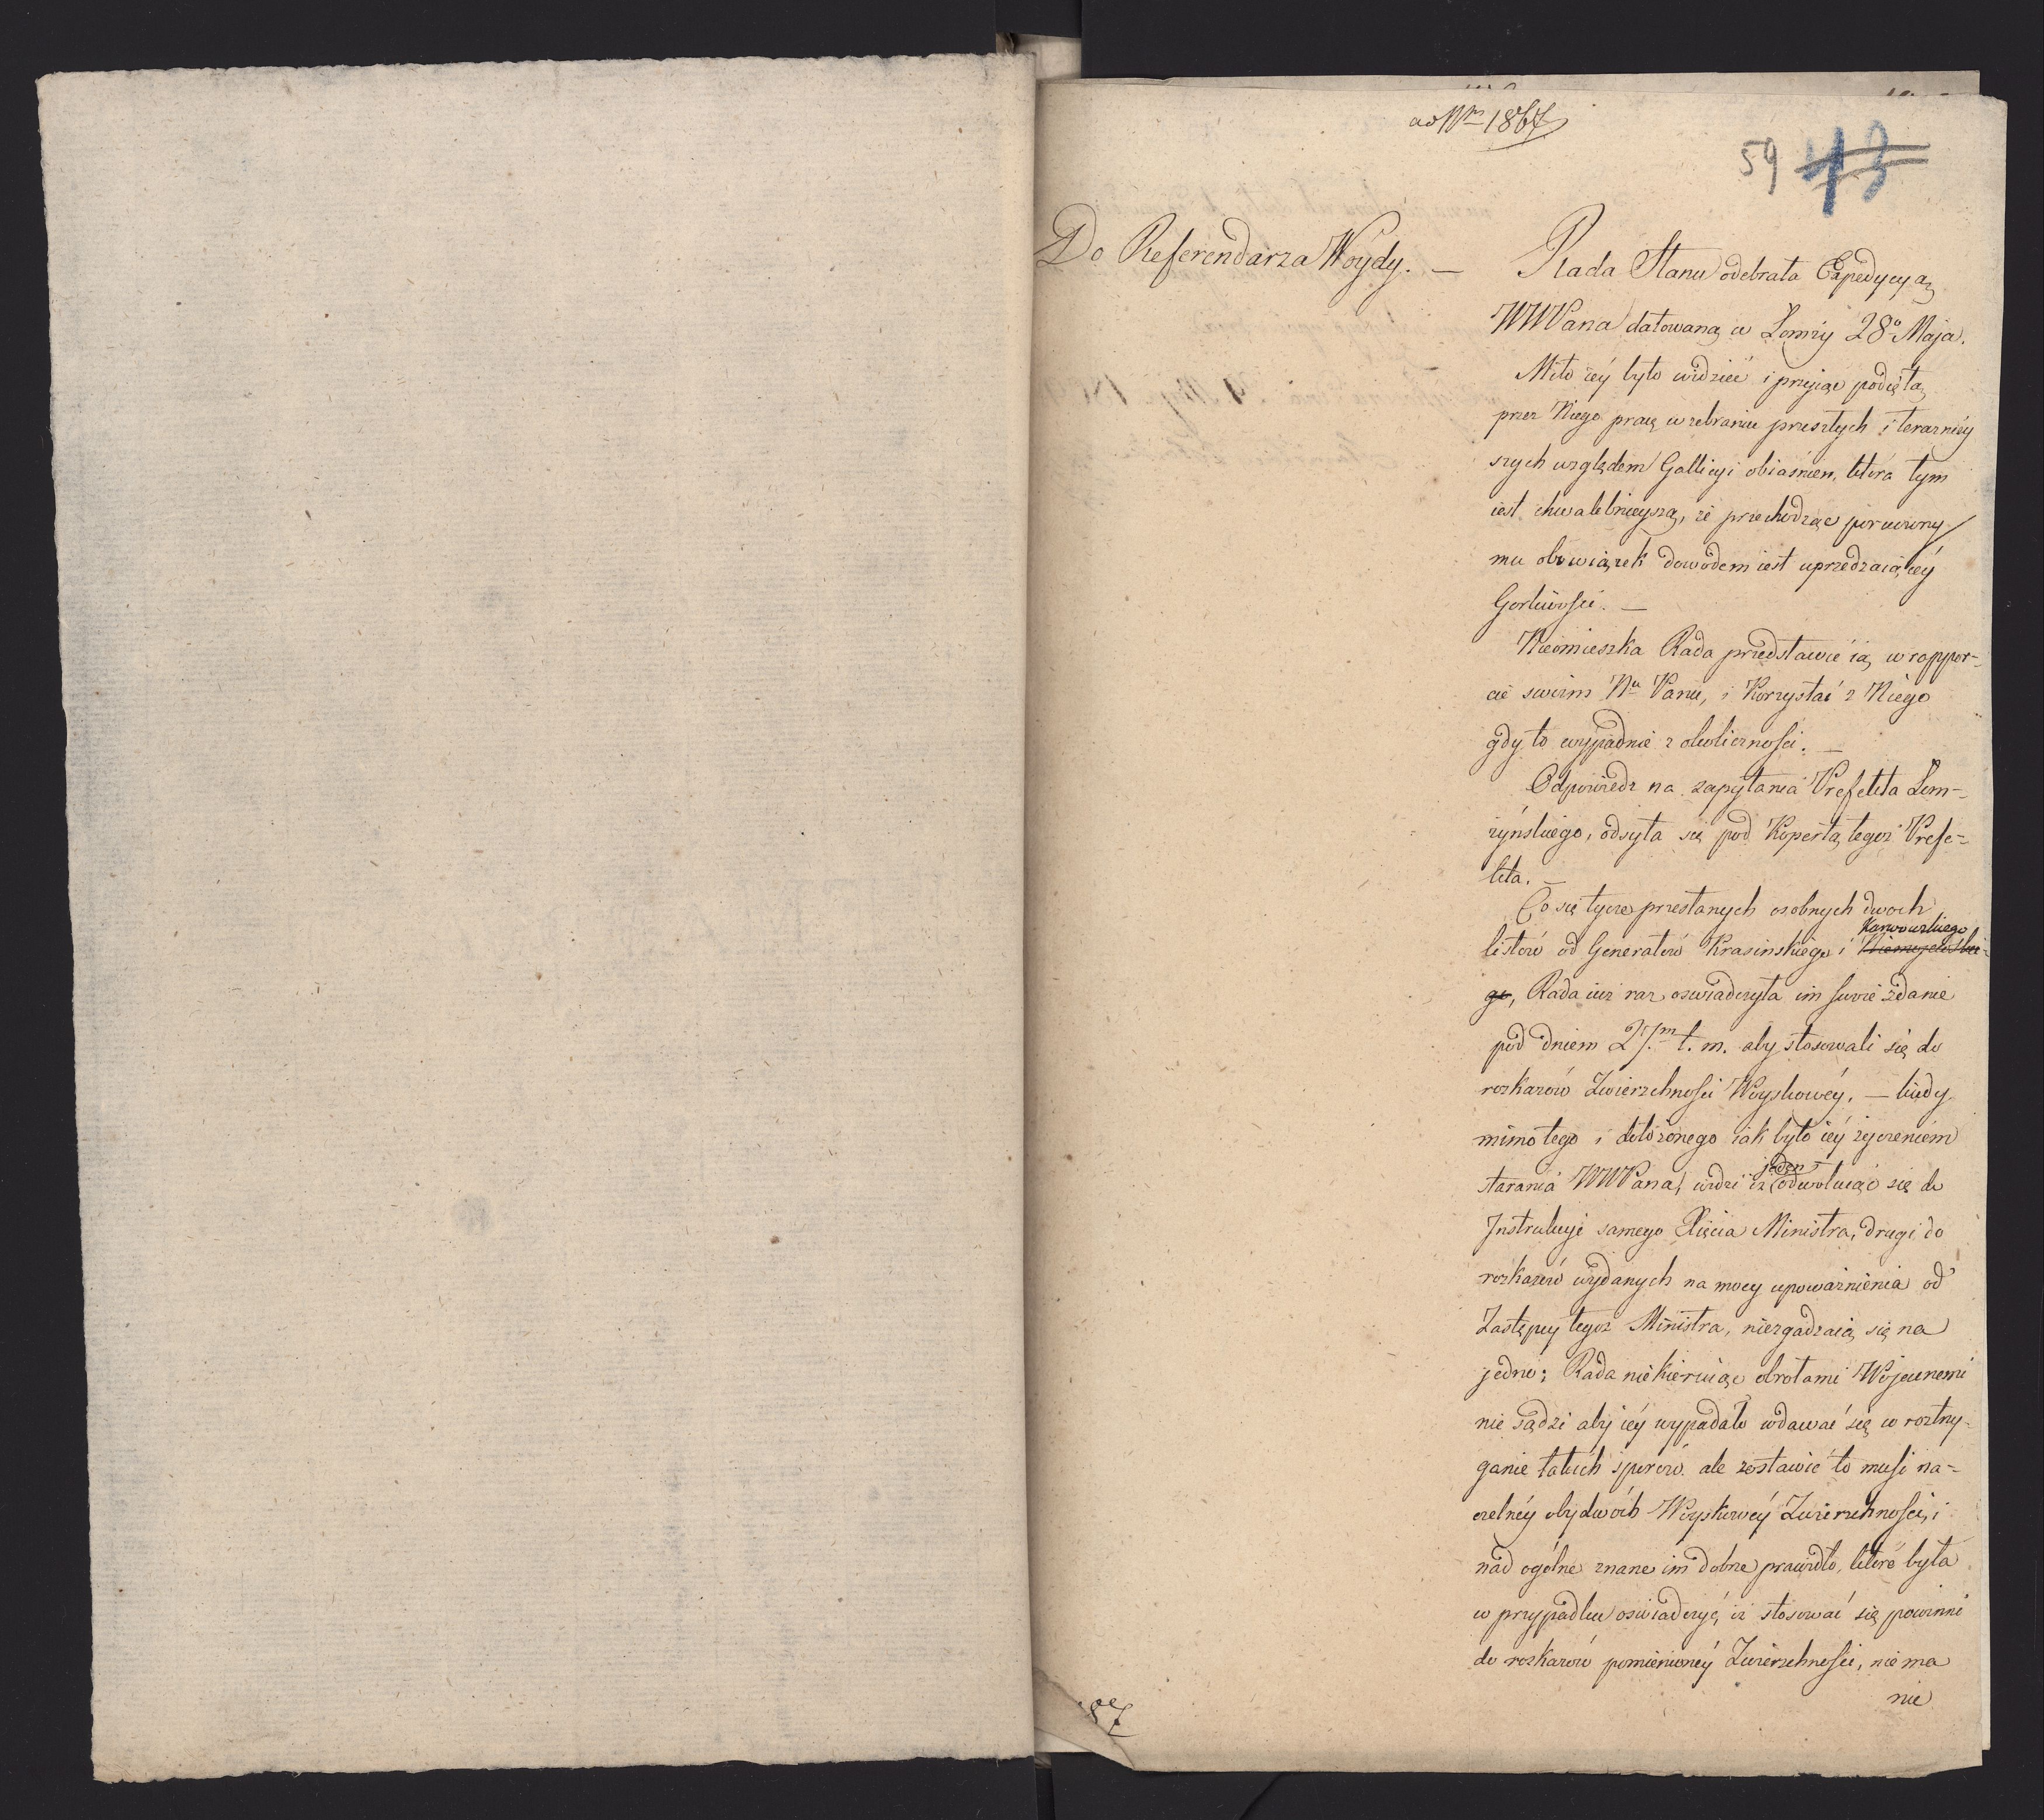 ad Nrm 1867
59 43
Do Referendarza Woydy. —
Rada Stanu odebrała Expedycyą
WWPana datowaną w Łomży 28o Maja.
Miło iéy było widzieć i przyiąć podiętą
przez Niego pracę w zebraniu przeszłych i teraznié́y
szych względem Gallicyi obiaśnien, która tym
iest chwalebnieyszą, że przechodząc porucony
mu obowiązek dowodem iest uprzedzaiącéy
Gorliwości. —
Nieomieszka Rada przedstawić ią w rappor-
cie swoim Nu Panu, i Korzystać z Niego
gdy to wypadnie z okoliczności. —
Odpowiedz na zapytania Prefekta Łom-
żyńskiego, odsyła się pod Kopertą tegoż Prefe-
kta. —
Co się tycze przesłanych osobnych dwóch
Karwowskiego
listów od Generałów Krasinskiego i Niemojewskie-
go, Rada iuż raz oswiadczyła im swoie zdanie
pod dniem 27m t. m. aby stosowali się do
rozkazów Zwierzchności Woyskowéy. — kiedy
mimo tego i dołożonego iak było iéy życzeniem
jeden
starania WWPana, widzi iż odwołuiąc się do
Instrukcyi samego Xięcia Ministra, drugi do
rozkazów wydanych na mocy upoważnienia od
Zastępcy tegoż Ministra, niezgadzaią się na
jedno; Rada niekieruiąc obrotami Wojennemi
nie sądzi aby iéy wypadało wdawać się w roztrzy-
ganie takich sporów. ale zostawić to musi na-
czelnéy obydwóch Woyskowéy Zwierzchności, i
nad ogólne znane im dobrze prawidło, które była
w przypadku oświadczyć, iż stosować się powinni
do rozkazów pomienionéy Zwierzchności, nie ma
nic
87